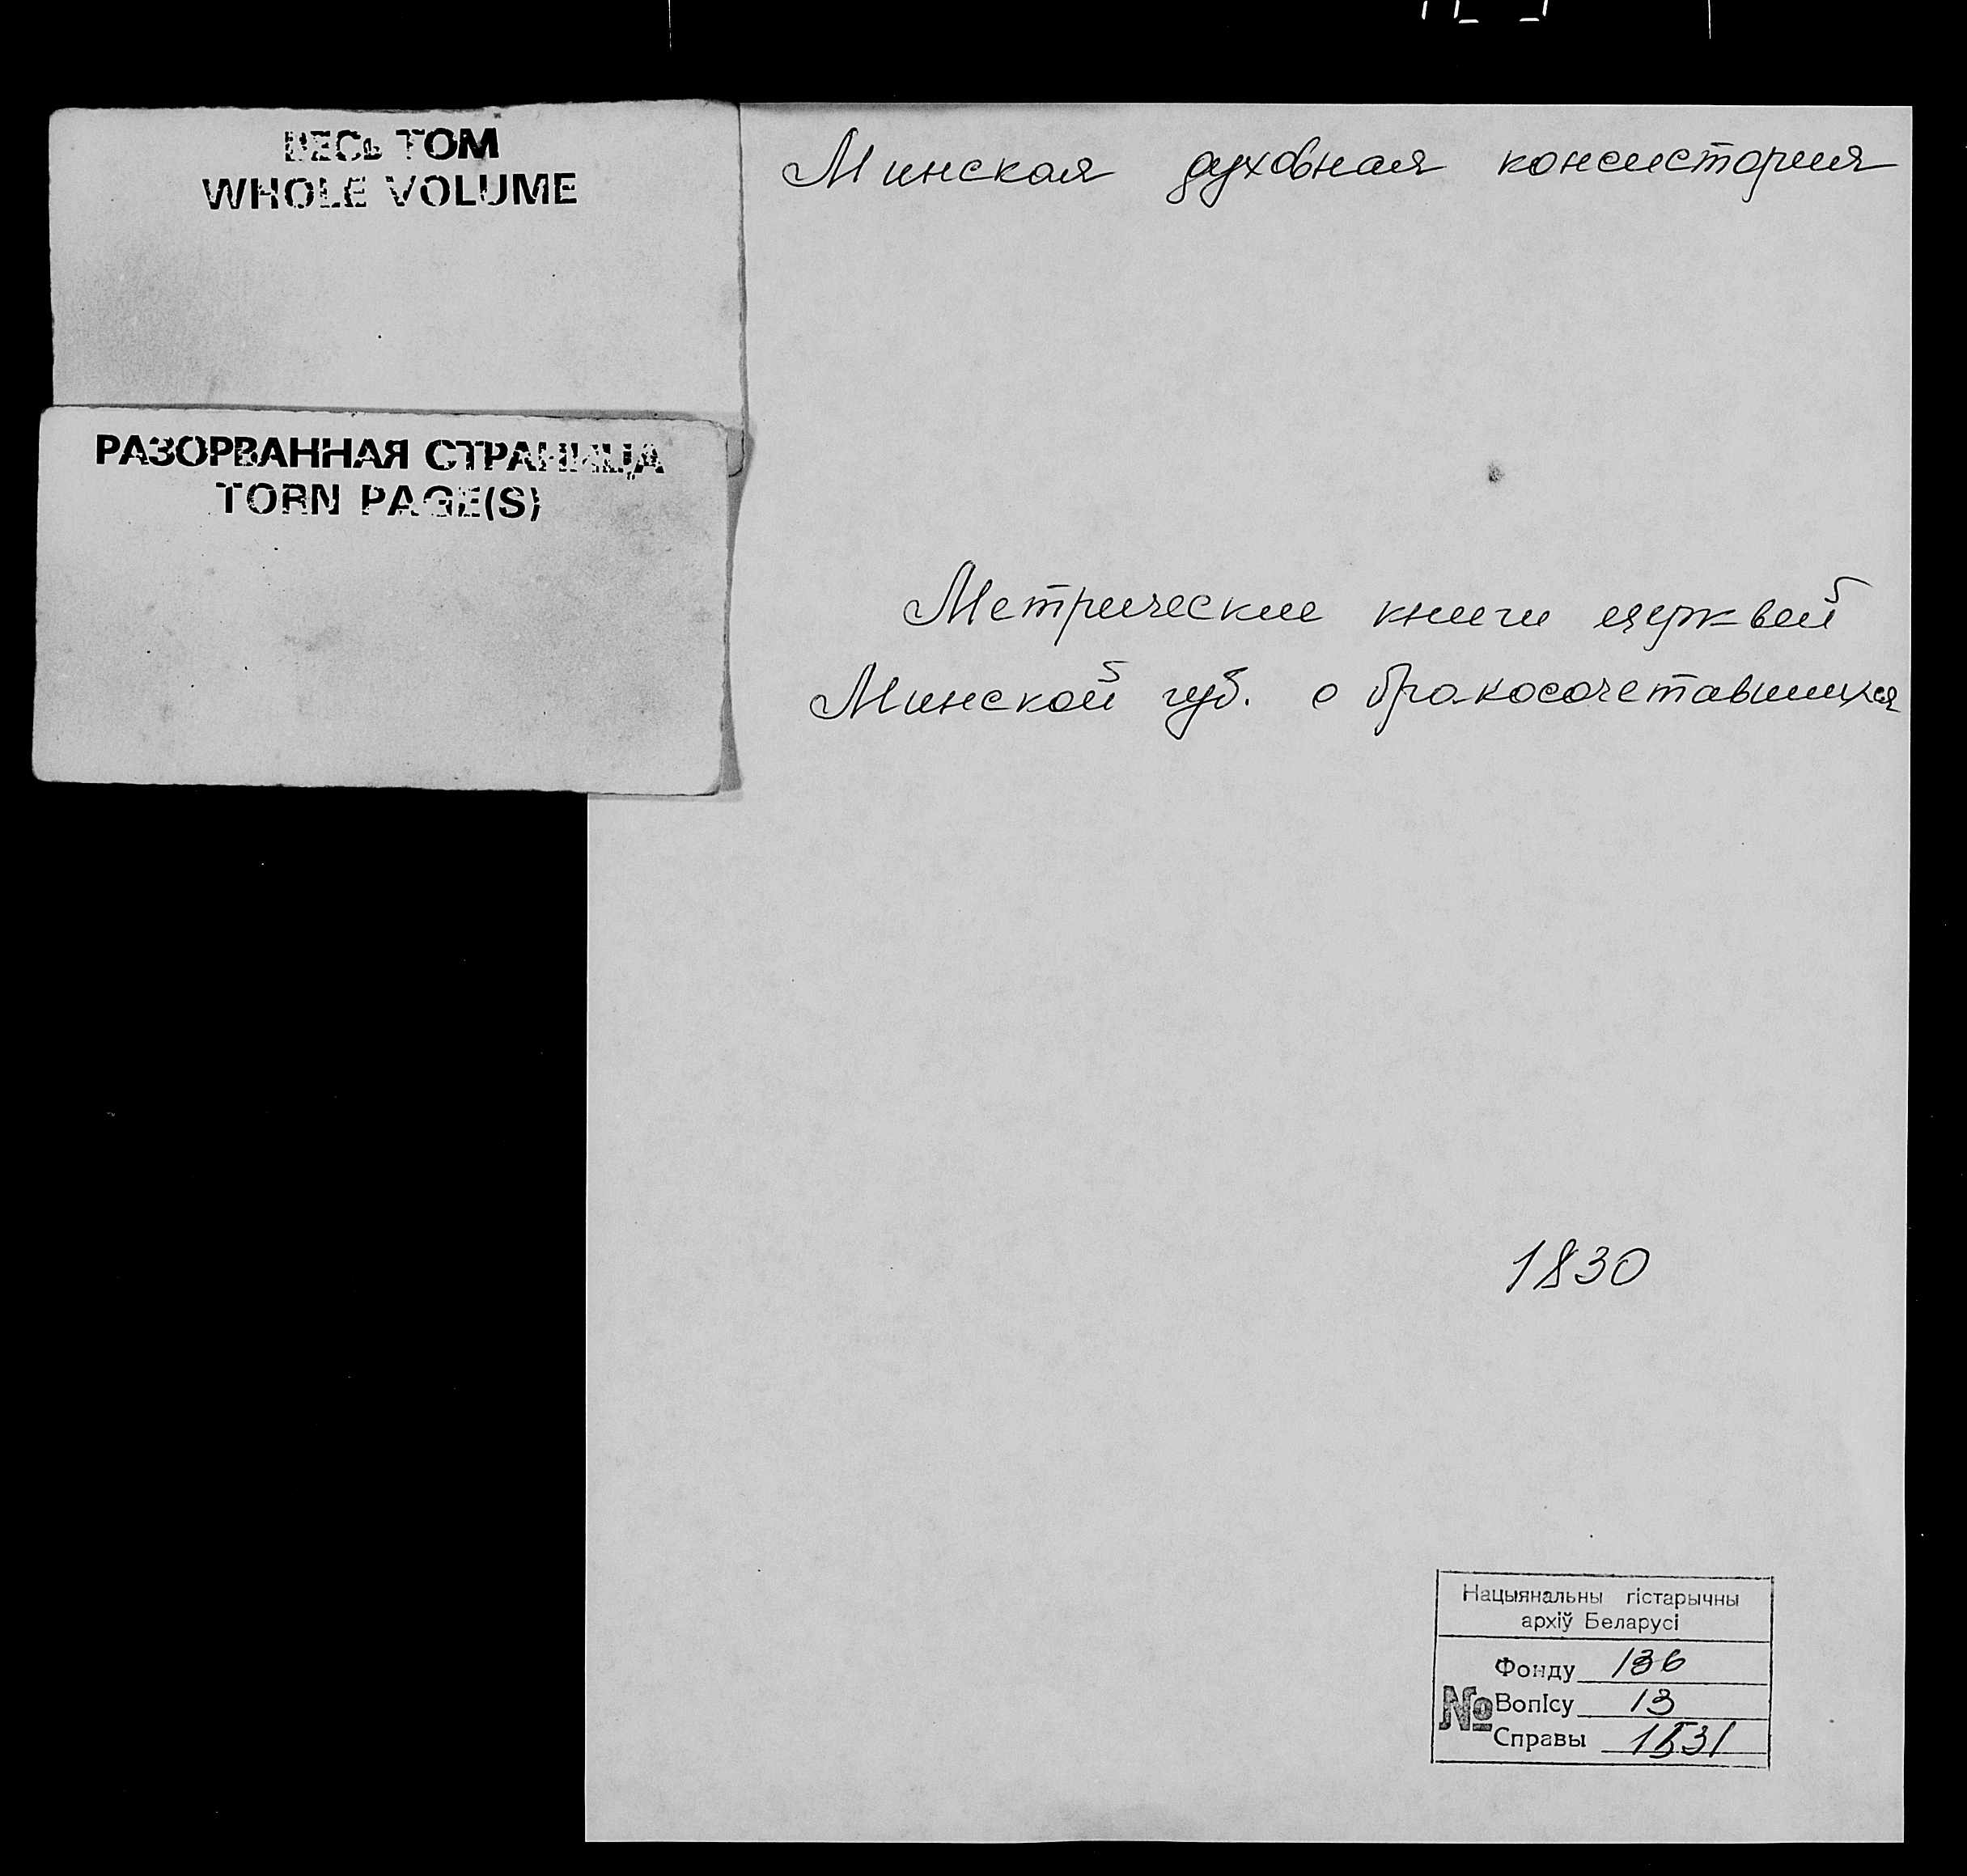 ВЕСЬ ТОМ
WHOLE VOLUME
РАЗОРВАННАЯ СТРАНИЦА
TORN PAGE(S)
Минская духовная консистория
Метрические книги церквей
Минской губ. о бракосочетавшихся
1830
Нацыянальны гістарычны
архіў Беларусі
Фонду 136
№ Вопісу 13
Справы 1531